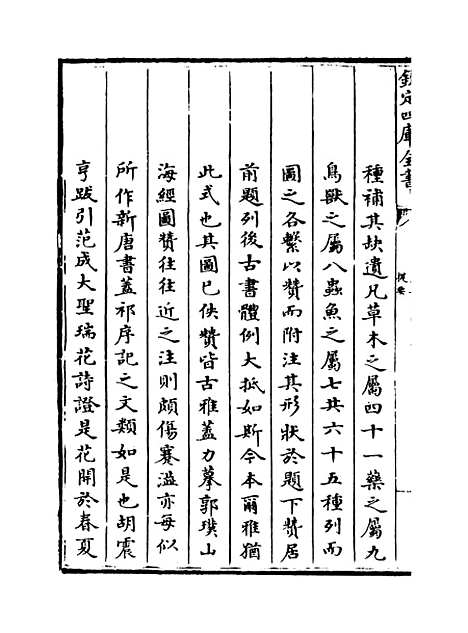 欽定四庫全書
提要
種補其缺遺凡草木之屬四十一藥之屬九
鳥獸之屬八蟲魚之屬七共六十五種列而
圖之各繫以贊而附注其形狀於題下贊居
前題列後古書體例大抵如斯今本爾雅猶
此式也其圖已佚贊皆古雅蓋力摹郭璞山
海經圖贊往往近之注則頗傷蹇澁亦每似
所作新唐書蓋祁序記之文類如是也胡震
亨跋引范成大聖瑞花詩證是花開於春夏